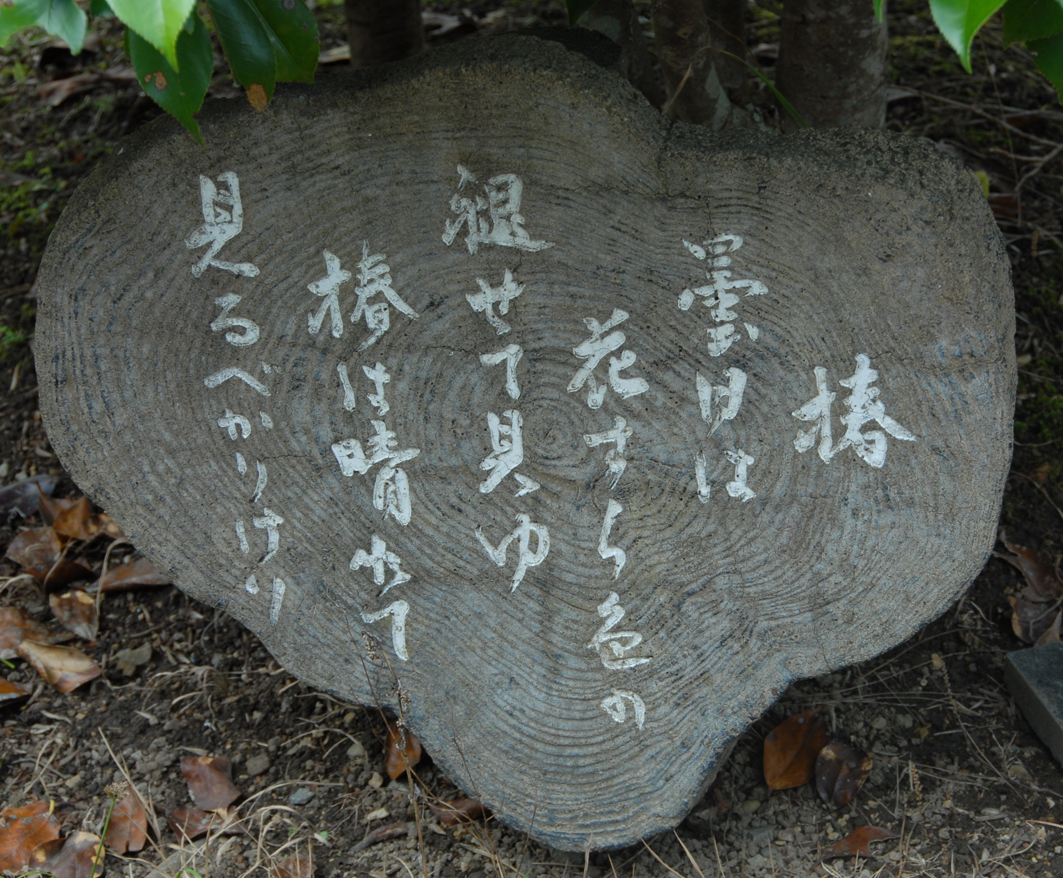 椿
曇日は
花すら色の
褪せて見ゆ
椿は晴れて
見るべかりけり